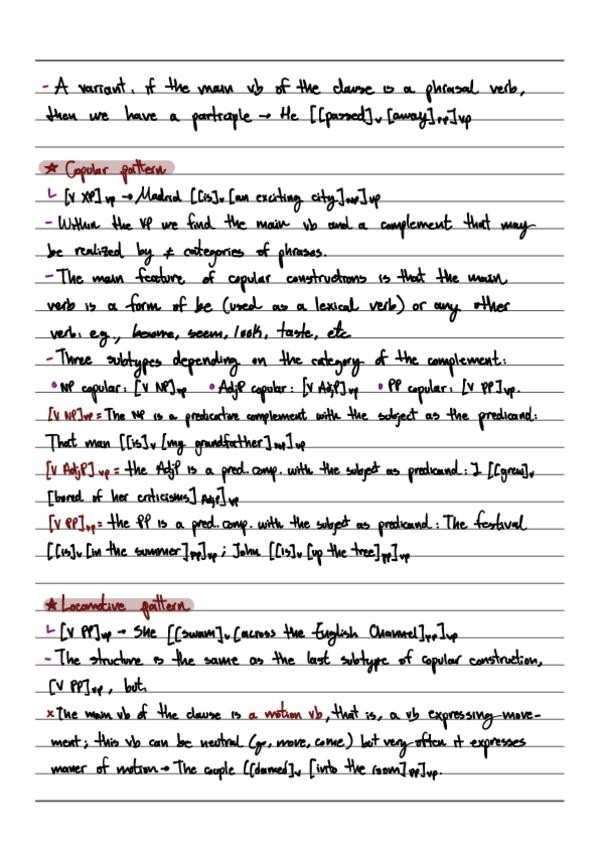 - A variant. if the main vb of the clause is a phrasal verb,
then we have a participle → He [[passed]v [away]PP]VP
★ Copular pattern
↳ [V XP]VP → Madrid [[is]v [an exciting city]NP]VP
- Within the VP we find the main vb and a complement that may
be realized by ≠ categories of phrases.
- The main feature of copular constructions is that the main
verb is a form of be (used as a lexical verb) or any other
verb: e.g., become, seem, look, taste, etc
- Three subtypes depending on the category of the complement:
• NP copular: [V NP]VP • AdjP copular: [V AdjP]VP • PP copular: [V PP]VP.
[V NP]VP = The NP is a predicative complement with the subject as the predicand:
That man [[is]v [my grandfather]NP]VP
[V AdjP]VP = the AdjP is a pred. comp. with the subject as predicand: I [[grew]v
[bored of her criticisms]AdjP]VP
[V PP]VP = the PP is a pred. comp. with the subject as predicand: The festival
[[is]v [in the summer]PP]VP; John [[is]v [up the tree]PP]VP
★ Locomotive pattern
↳ [V PP]VP → She [[swam]v [across the English Channel]PP]VP
- The structure is the same as the last subtype of copular construction,
[V PP]VP, but.
x The main vb of the clause is a motion vb, that is, a vb expressing move-
ment; this vb can be neutral (go, move, come) but very often it expresses
maner of motion → The couple [[danced]v [into the room]PP]VP.